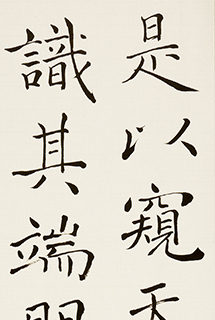 是以窺天
識其端